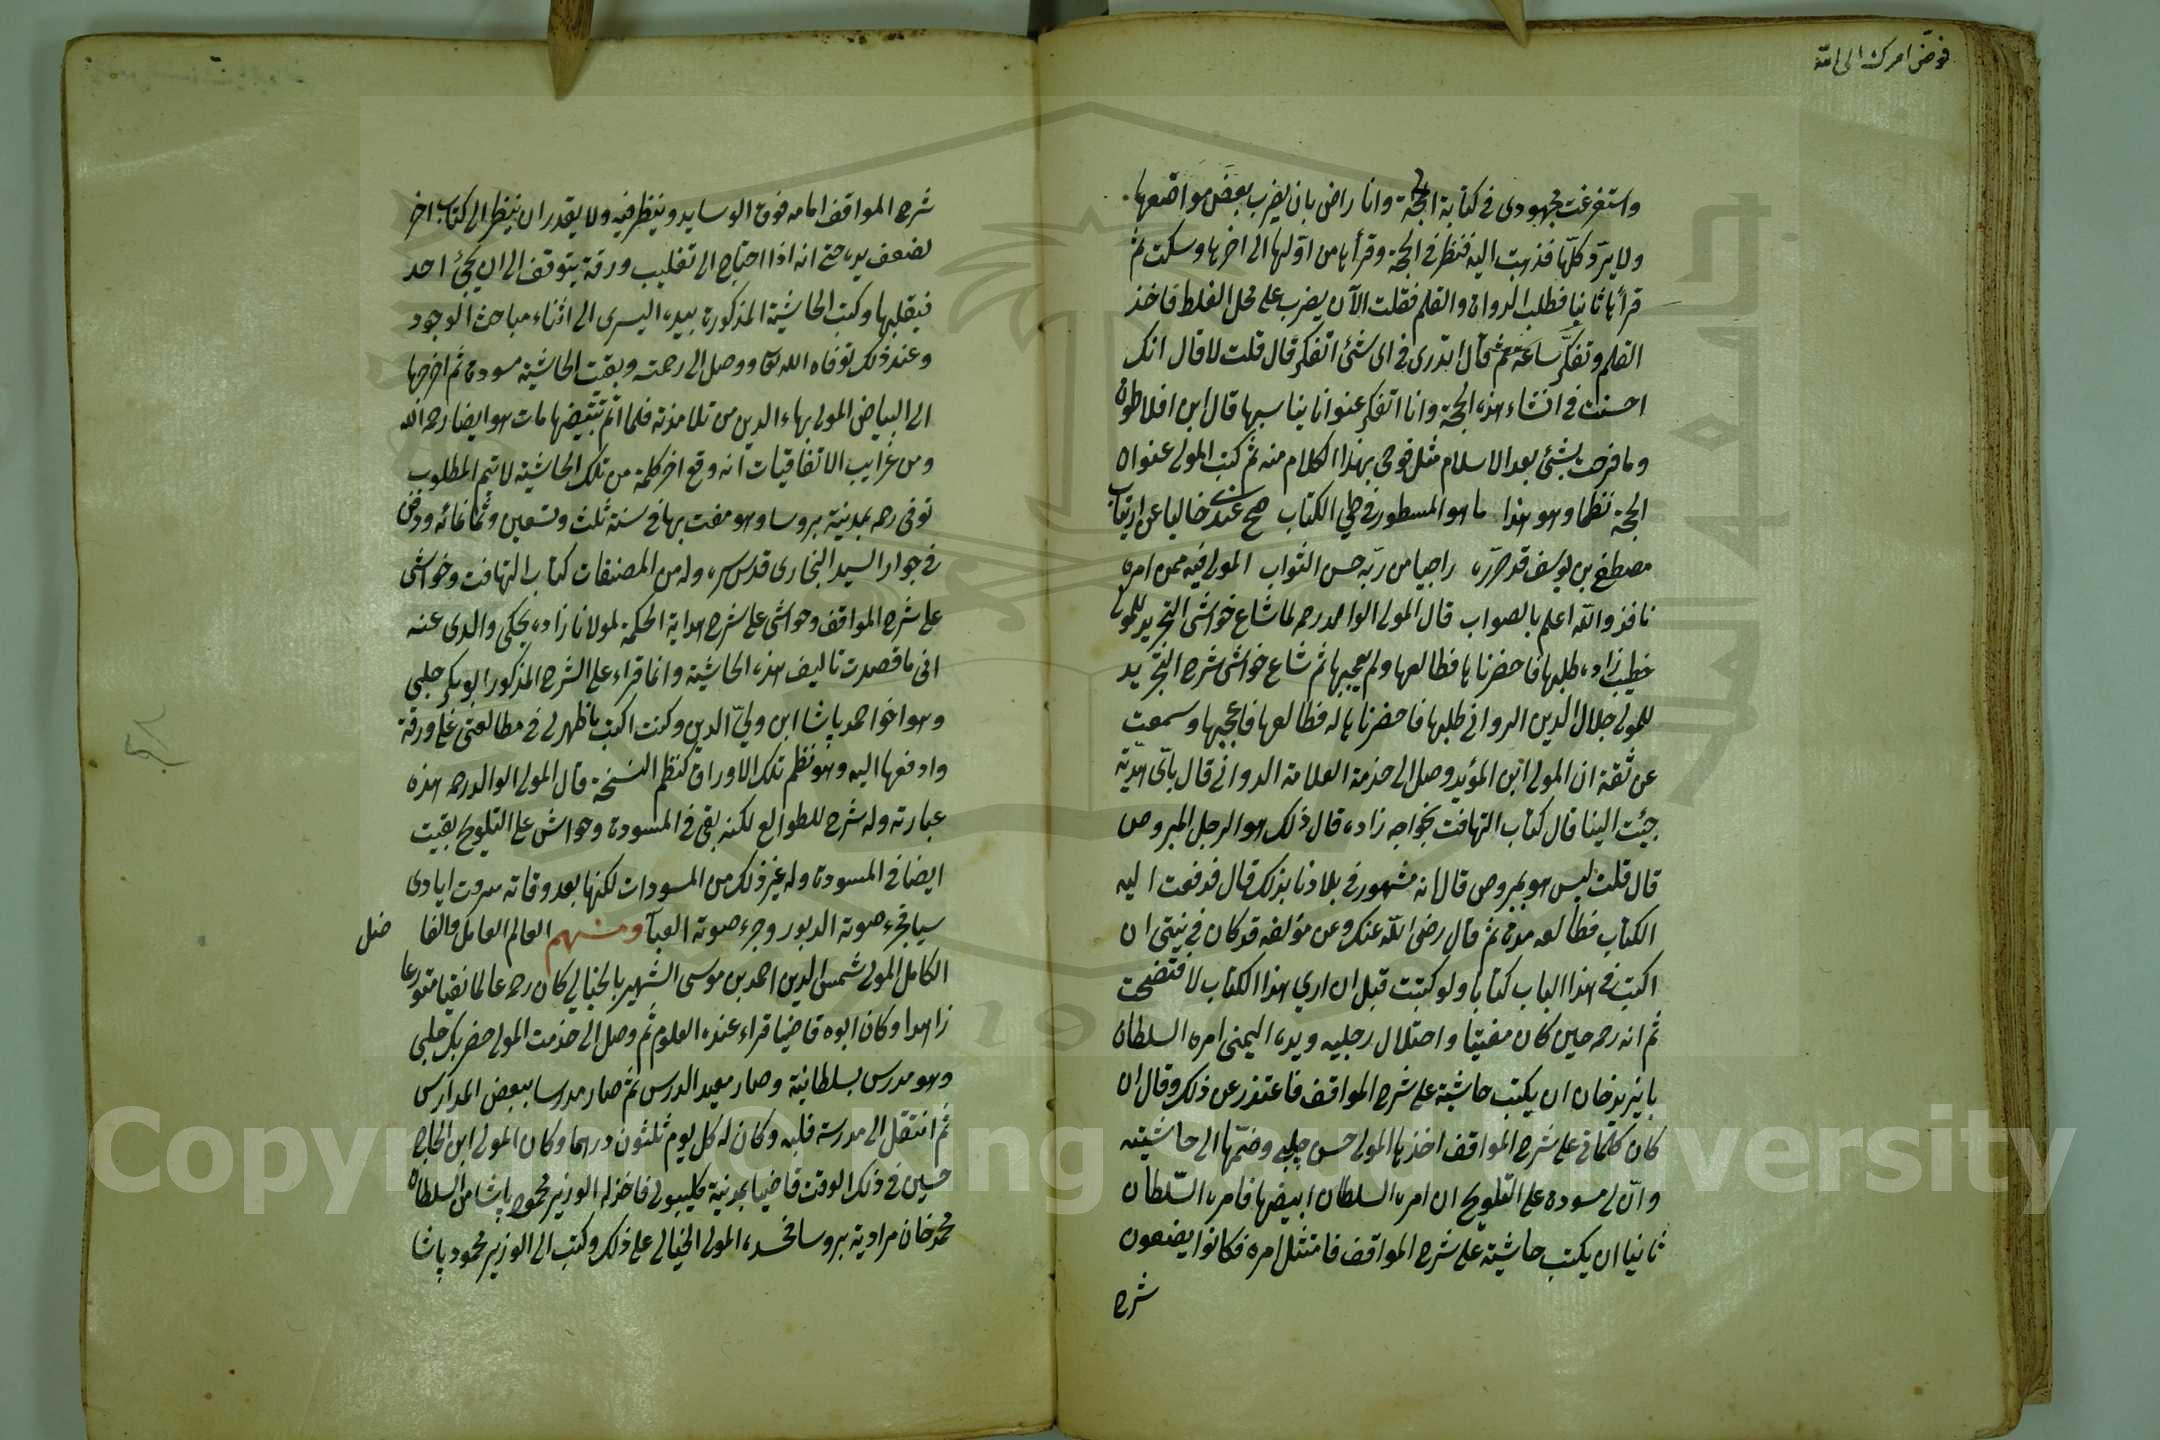 فوض امرك الى الله
واستفرغت مجهودى فى كتابة الحجة وانا راض بان يضرب بعض مواضعها
ولا يرد كلها فذهبت اليه فنظر فى الحجة وقرأها من اولها الى اخرها وسكت ثم
قرأها ثانيا فطلب الدواة والقلم فقلت الآن يضرب على محل الغلط فاخذ
القلم وتفكر ساعة ثم قال اتدرى فى اى شئ اتفكر قال قلت لا قال انك
احسنت فى انشاء هذه الحجة وانا اتفكر عنوانا يناسبها قال ابن افلاطون
وما فرحت بشئ بعد الاسلام مثل فرحى بهذا الكلام منه ثم كتب المولى عنوان
الحجة نظما وهو هذا ما هو المسطور فى طى الكتاب صح عندى خاليا عن ارتياب
مصطفى بن يوسف قد حرره راجيا من ربه حسن الثواب المولى فيه ممن امره
نافذ والله اعلم بالصواب قال المولى الوالد رحمه لما شاع حواشى التجريد للمولى
خطيب زاده طلبها فاحضرناها فطالعها ولم يعجبها ثم شاع حواشى شرح التجريد
للمولى جلال الدين الدوانى طلبها فاحضرناها له فطالعها فاعجبها وسمعت
عن ثقة ان المولى ابن المؤيد وصل الى خدمة العلامة الدوانى قال باى هدية
جئت الينا قال كتاب التهافت لخواجه زاده قال ذلك هو الرجل المبروص
قال قلت ليس هو بمبروص قال انه مشهور فى بلادنا بذلك قال فدفعت اليه
الكتاب فطالعه مدة ثم قال رضى الله عنك وعن مؤلفه قد كان فى نيتى ان
اكتب فى هذا الباب كتابا ولو كتبت قبل ان ارى هذا الكتاب لافتضحت
ثم انه رحمه حين كان مفتيا واختلال رجليه ويده اليمنى امره السلطان
بايزيد خان ان يكتب حاشية على شرح المواقف فاعتذر عن ذلك وقال ان
كان كلماتى على شرح المواقف اخذها المولى حسن چلبى وضمها الى حاشيته
وان لى مسودة على التلويح ان امره السلطان ابيضها فامره السلطان
ثانيا ان يكتب حاشية على شرح المواقف فامتثل امره فكانوا يضعون
شرح
شرح المواقف امامه فوق الوسايد وينظر فيه ولا يقدر ان ينظر الى كتاب اخر
لضعف يده حتى انه اذا احتاج الى تقليب ورقة يتوقف الى ان يجئ احد
فيقلبها وكتب الحاشية المذكورة بيده اليسرى الى اثناء مباحث الوجود
وعند ذلك توفاه الله تعا ووصل الى رحمته وبقيت الحاشية مسودة ثم اخرجها
الى البياض المولى بهاء الدين من تلامذته فلما اتم تبييضها مات هو ايضا رحمه الله
ومن غرايب الاتفاقيات انه وقع اخر كلمة من تلك الحاشية لا تتم المطلوب
توفى رحمه بمدينة بروسا وهو مفت بها فى سنة ثلث وتسعين وثمانمائه ودفن
فى جوار السيد البخارى قدس سره وله من المصنفات كتاب التهافت وحواشى
على شرح المواقف وحواشى على شرح هداية الحكمة لمولانا زاده يحكى والدى عنه
انى ما قصدت تاليف هذه الحاشية وانما قراء على الشرح المذكور ابو بكر چلبى
وهو اخو احمد پاشا ابن ولى الدين وكنت اكتب ما ظهر لى فى مطالعتى على ورقة
وادفعها اليه وهو نظم تلك الاوراق كنظم السبحة قال المولى الوالد رحمه هذه
عبارته وله شرح للطوالع لكنه بقى فى المسودة وحواش على التلويح بقيت
ايضا فى المسودة وله غير ذلك من المسودات لكنها بعد وفاته سرقت ايادى
سبا فجزء حوته الدبور وجزء حوته الصبا ومنهم العالم العامل والفاضل
الكامل المولى شمس الدين احمد بن موسى الشهير بالخيالى كان رحمه عالما تقيا متورعا
زاهدا وكان ابوه قاضيا قراء عنده العلوم ثم وصل الى خدمت المولى حضر بك چلبى
وهو مدرس بسلطانية وصار معيد الدرس ثم صار مدرسا ببعض المدارس
ثم انتقل الى مدرسة فلبه وكان له كل يوم ثلثون درهما وكان المولى ابن الحاج
حسين فى ذلك الوقت قاضيا بمدينة كليبولى فاخذ له الوزير محمود پاشا من السلطان
محمد خان مرادية بروسا فحسده المولى الخيالى على ذلك وكتب الى الوزير محمود پاشا
Copyright © King Saud University